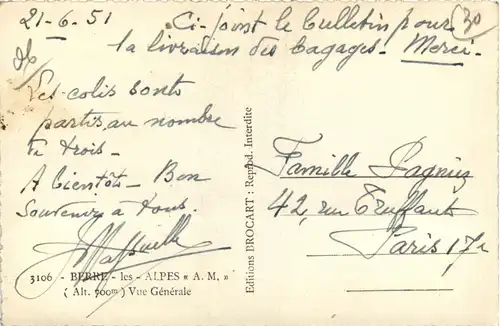 21-6-51
Ci-joint le bulletin pour
la livraison des bagages - Merci -
Les colis sont
partis au nombre
de trois -
A bientôt - Bon
Souvenir à tous.
3106 - BERRE - les - ALPES « A. M. »
( Alt. 500m ) Vue Générale
Editions BROCART : Reprod. Interdite
Famille Pagniez
42, rue Truffaut
Paris 17e
30